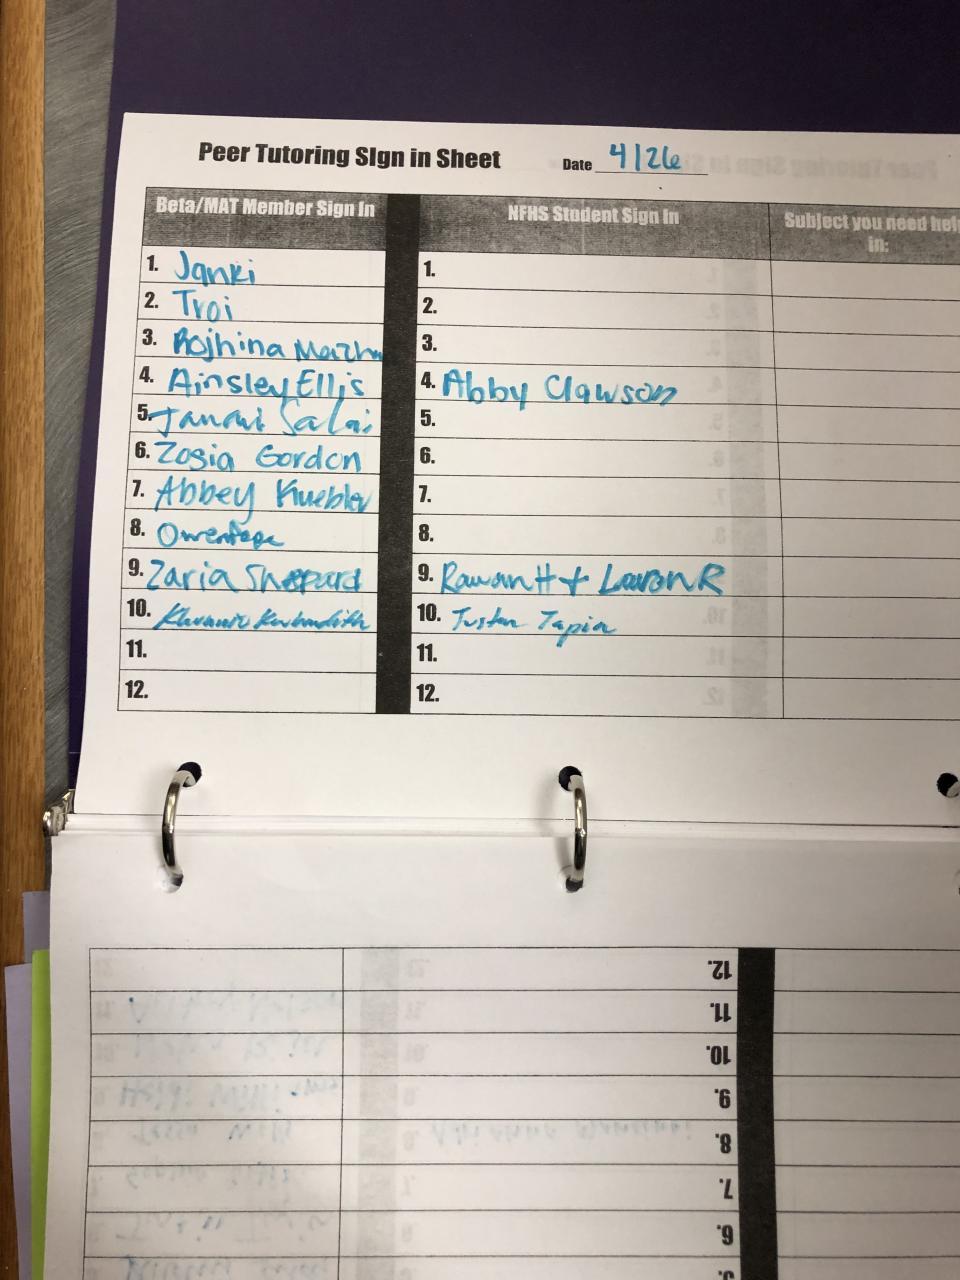 Peer Tutoring Sign in Sheet Date 4/26
Beta/MAT Member Sign In NFHS Student Sign In Subject you need help in:
1. Janki 1.
2. Troi 2.
3. Rojhina 3.
4. Ainsley Ellis 4. Abby Clawson
5. Salai 5.
6. Zosia Gordon 6.
7. Abbey Kuebler 7.
8. Owen Page 8.
9. Zaria Shepard 9. Rawan H + R
10. 10. Tapia
11. 11.
12. 12.
12.
11.
10.
9.
8.
7.
6.